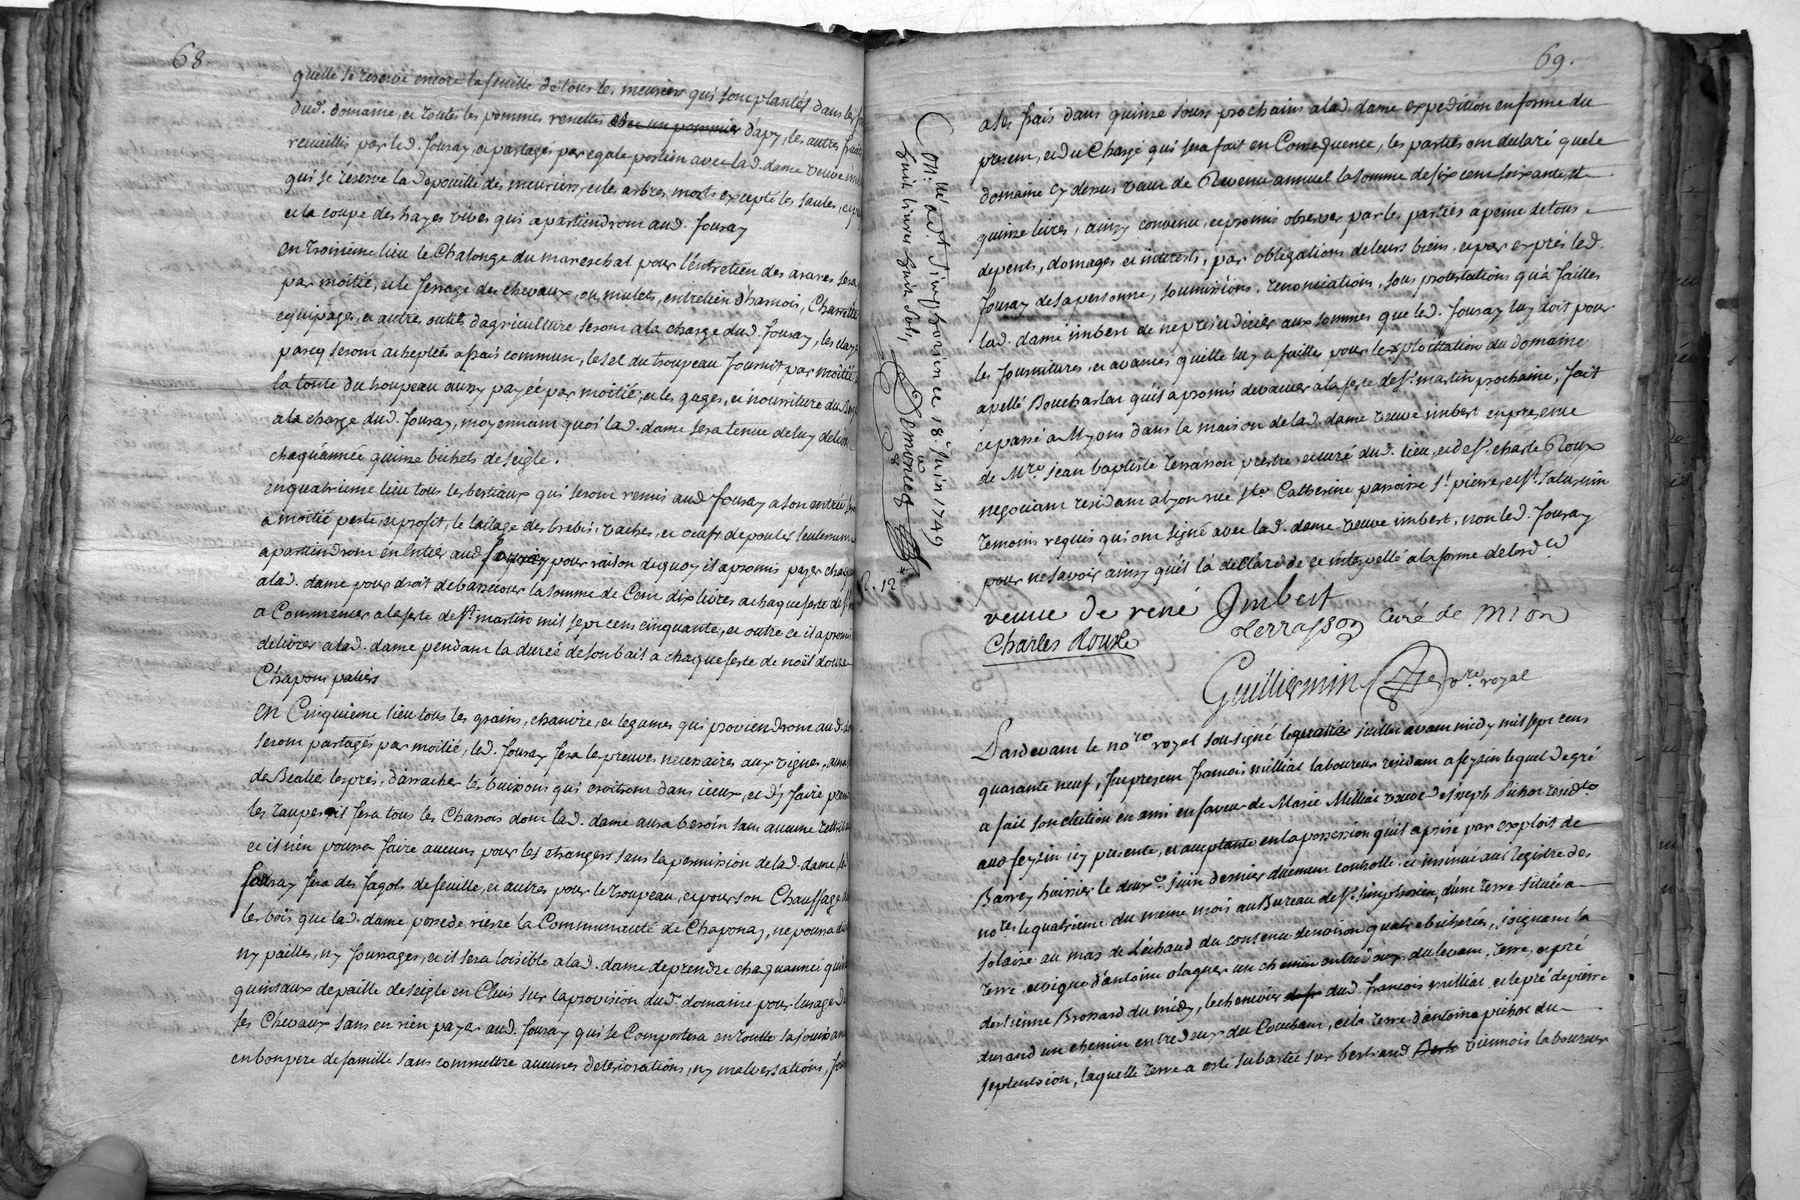 68.
quelle se reserve encore la feuille de tous les meuriers qui sont plantés dans les
dud. domaine, et toutes les pommes renettes avec un pommier d'apy, les autres fruits
recueillis par led. Jouray, a partager par egale portion avec lad. dame veuve
qui se réserve la dépouille des meuriers, et les arbres morts excepté les saules,
et la coupe des hayes vives qui apartiendront aud. Jouray
en troisieme lieu le Chalonge du mareschal pour l'entretien des araires sera
par moitié, et le ferrage des chevaux, ou mulets, entretien d'harnois, Charrette
equipages, et autre outils d'agriculture seront a la charge dud. Jouray, les clayes
parcq seront acheptées a frais commun, le sel du troupeau fournit par moitié
la tonte du troupeau aussy payée par moitié, et les gages, et nourriture du
a la charge dud. Jouray, moyennant quoi lad. dame sera tenue de luy delivrer
chaqu'année quinze bichets de seigle.
en quatrieme lieu tous les bestiaux qui seront remis aud. Jouray a son entrée
a moitié perte, et profit, le laitage des brebis, vaches, et oeufs de poules seulement
apartiendront en entier aud Jouray pour raison de quoy il a promis payer chaque
a lad. dame pour droit de bassecour la somme de Cent dix livres a chaque feste de
a Commencer a la feste de St. martin mil sept cens cinquante, et outre ce il a promis
delivrer a lad. dame pendant la durée de son bail a chaque feste de noël douze
Chapons paliers
en Cinquieme lieu tous les grains, chanvre, et legumes qui proviendront aud.
seront partagés par moitié, led. Jouray fera les preuves necessaires aux vignes,
de Bealer les prés, d'arracher les buissons qui croitront dans iceux, et d'y faire prendre
les taupes, il fera tous les Charrois dont lad. dame aura besoin sans aucune
et il n'en pourra faire aucuns pour les etrangers sans la permission de lad. dame,
Jouray fera des fagots de feuille, et autres pour le troupeau, et pour son Chauffage
les bois que lad. dame possede riere la Communauté de Chaponay, ne pourra
ny pailles, ny fourrages, et il sera loisible a lad. dame de prendre chaqu'année quinze
quintaux de paille de seigle en Cluis sur la provision dud. domaine pour l'usage de
ses Chevaux sans en rien payer aud. Jouray qui se Comportera en toutte sa jouissance
en bon pere de famille sans commettre aucunes deteriorations, ny malversations,
Con.llé a St. Simphorien ce 18e juin 1749
huit livres huit sols,
R. 12
69.
a ses frais dans quinse jours prochains a lad. dame expedition en forme du
present, et du Chargé qui sera fait en Consequence, les parties ont declaré que le
domaine cy dessus vaut de Revenu annuel la somme de six cent soixante et
quinse livres, ainsy convenu, et promis observer par les parties a peine de tous
depents, domages et interets, par obligations de leurs biens, et par exprés led.
Jouray de sa personne, soumissions, renonciations, sous protestations qu'a faittes
lad. dame imbert de ne prejudicier aux sommes que led. Jouray luy doit pour
les fournitures, et avances qu'elle luy a faittes pour l'exploitation du domaine
apellé Boucharlat qu'il a promis de vacuer a la feste de St. martin prochaine, fait
et passé a Myons dans la maison de lad. dame veuve imbert en presence
de Mre. jean baptiste Terrasson prestre, et curé dud. lieu, et de Sr. charle Roux
negociant residant a lyon rue Ste Catherine paroisse St. pierre, et St. saturnin
temoins requis qui ont signé avec lad. dame veuve imbert, non led. Jouray
pour ne savoir ainsy qu'il l'a declaré de ce interpellé a la forme de l'ord.ce
veuve de rené Imbert
Terrasson curé de mion
Charles Rouxe
Guilliermin no.re royal
Pardevant le no.re royal soussigné le quatre juillet avant midy mil sept cens
quarante neuf, fut present françois milliat laboureur residant a feysin lequel de gré
a fait son election en ami en faveur de Marie Milliat veuve de joseph Pichot resid.te
aud feysin icy presente, et acceptante en la possession qu'il a prise par exploit de
Barrey huissier le deux.e juin dernier duement controllé, et insinué au Registre des
no.res le quatrieme du meme mois au Bureau de St. simphorien, d'une terre située a
solaise au mas de Léchaud du contenu d'environ quatre bicherées, joignant la
terre et vigne d'antoine olagner un chemin entre deux du levant, terre, et pré
d'estienne Brossard du midy, le chenevier dud. françois milliat, et le pré de pierre
durand un chemin entre deux du Couchant, et la terre d'antoine pichot du
septentrion, laquelle terre a esté subastée sur bertrand viennois laboureur